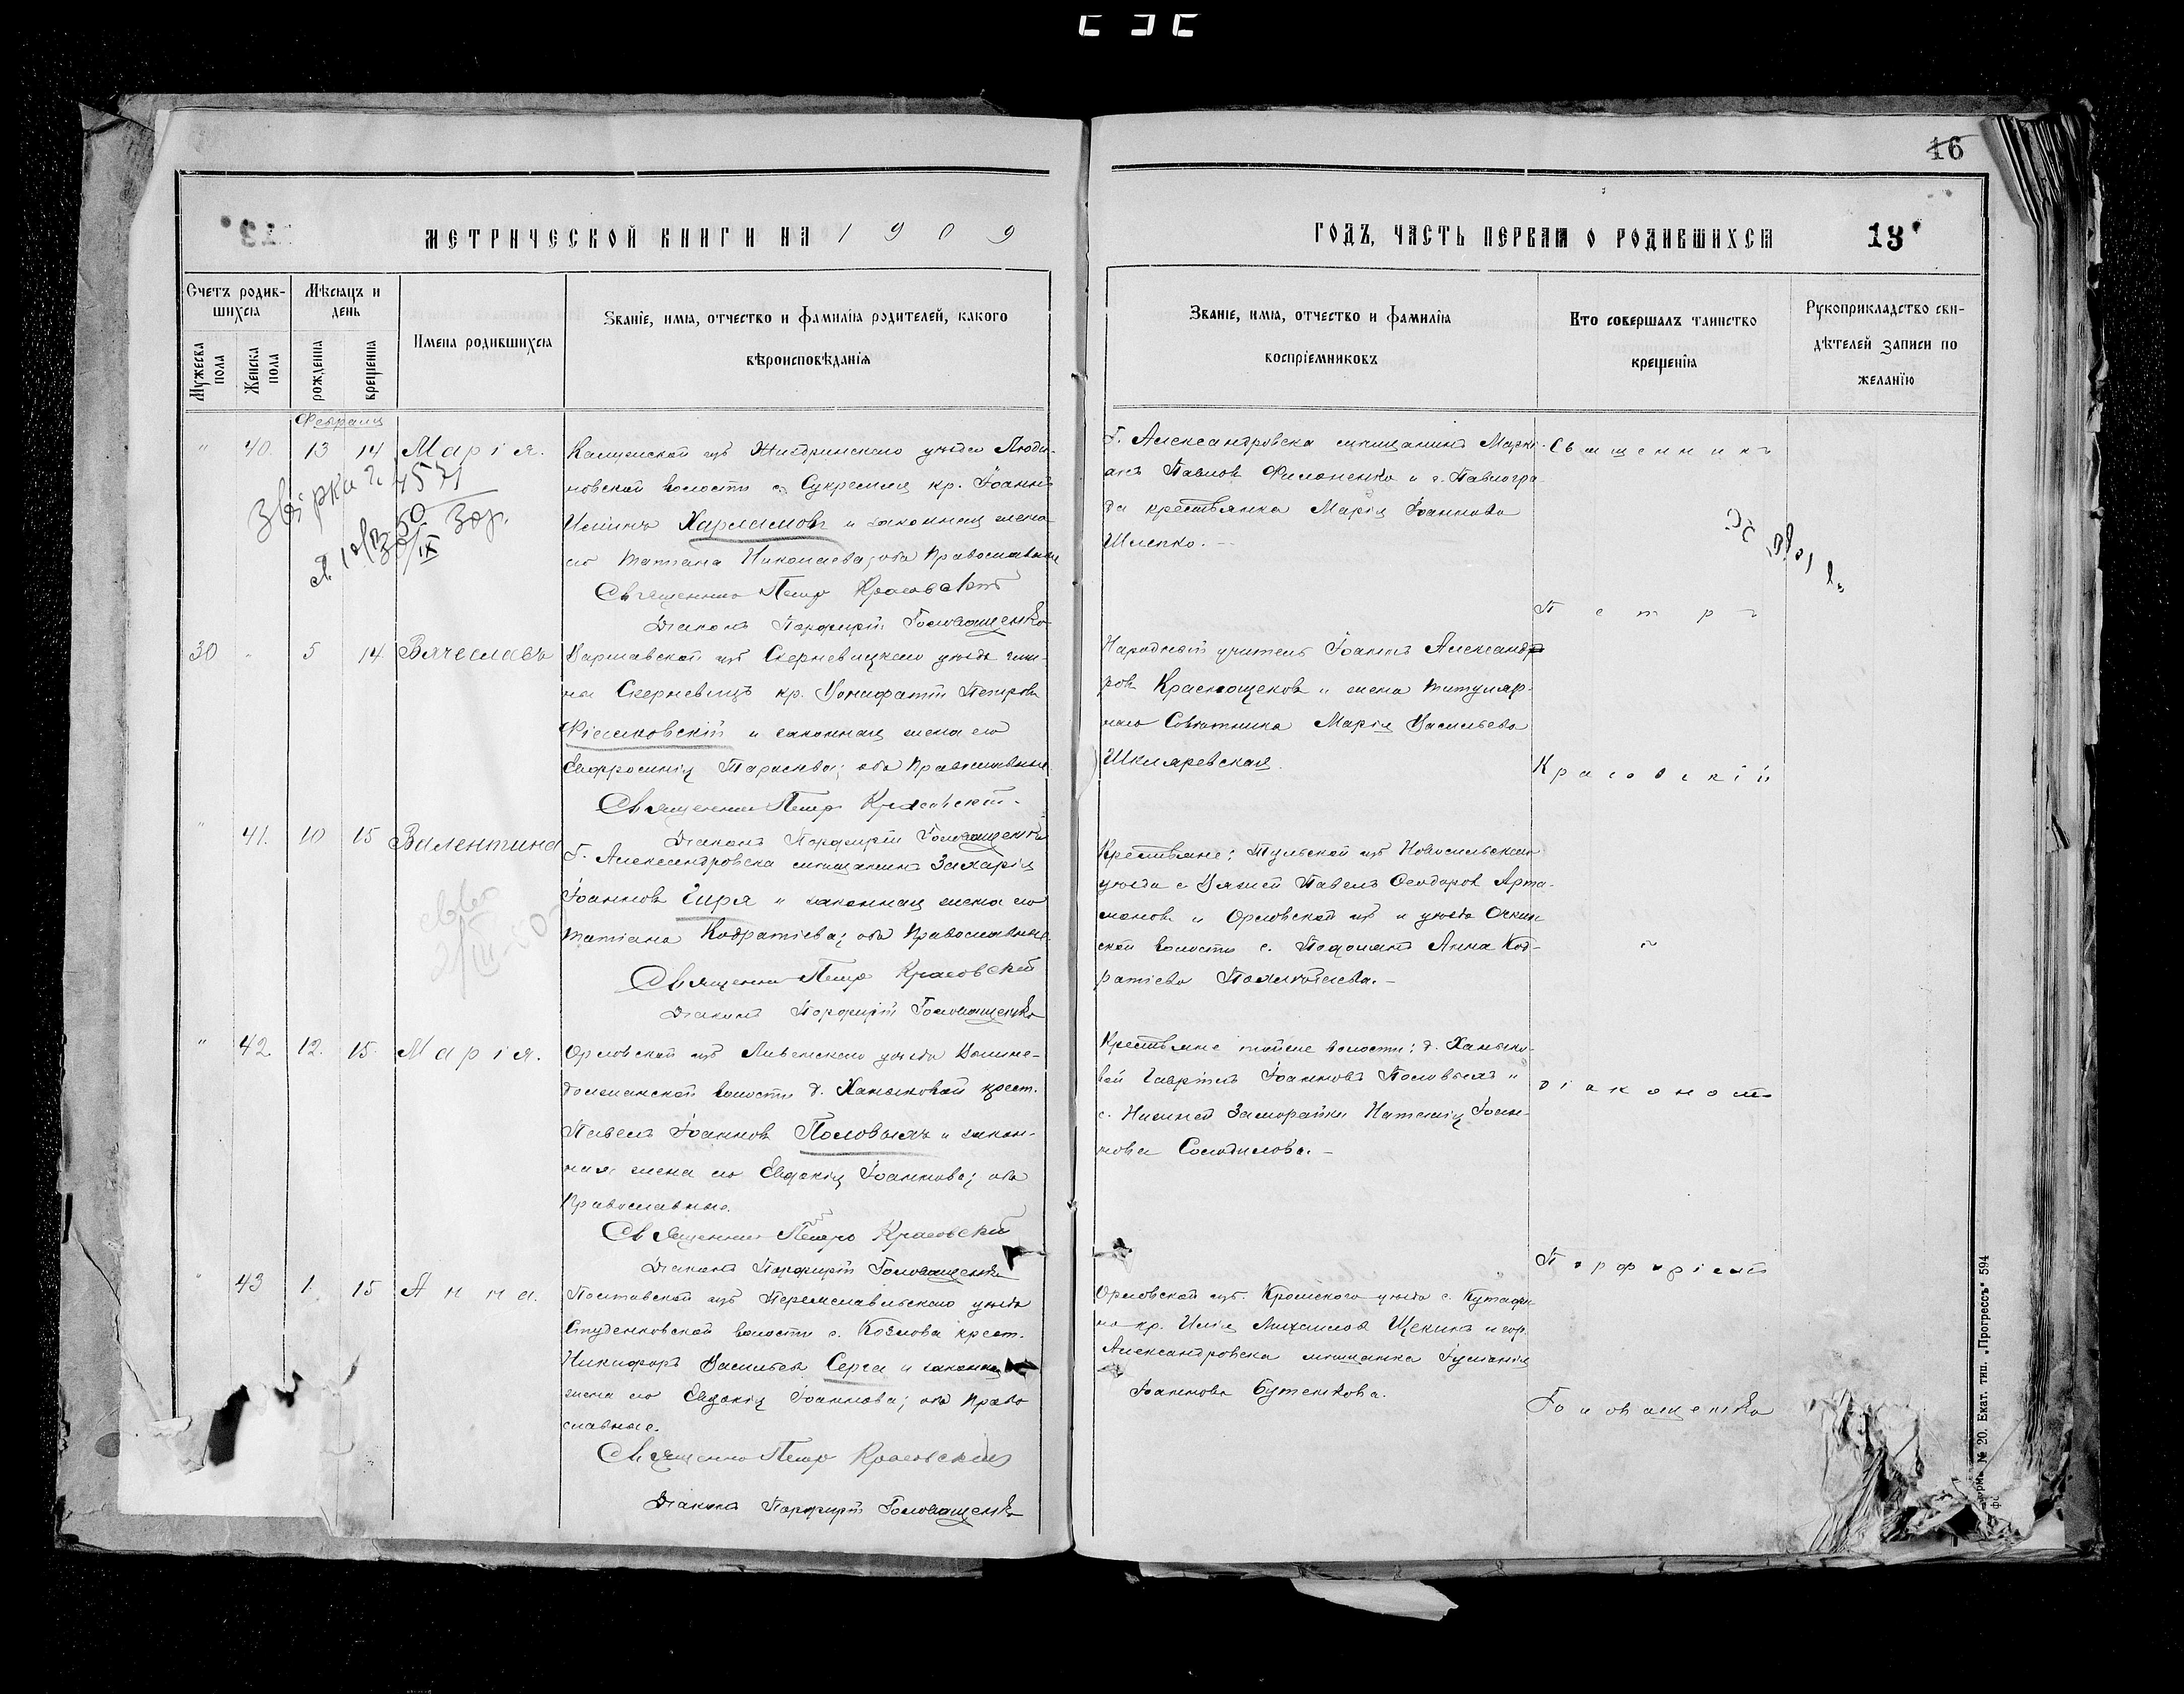 16
МЕТРИЧЕСКОЙ КНИГИ НА 1909
ГОДЪ, ЧАСТЬ ПЕРВАЯ О РОДИВШИХСЯ
13
Счетъ родив-
шихся
Мѣсяцъ и
день
Мужеска
пола
Женска
пола
рожденія
крещенія
Имена родившихся
Званіе, имя, отчество и фамилія родителей, какого
вѣроисповѣданія
Званіе, имя, отчество и фамилія
воспріемниковъ
Кто совершалъ таинство
крещенія
Рукоприкладство сви-
дѣтелей записи по
желанію
Февраля
" 40. 13 14 Марія.
Калужской губ Жиздринскаго уѣзда Люди-
новской волости с Сукремля кр. Іоаннъ
Иліинъ Харламовъ и законная жена
его Татіана Николаева; оба Православные
Священникъ Петръ Красовскій
Діаконъ Порфирій Головащенко
Г. Александровска мѣщанинъ Марки-
анъ Павловъ Филоненко и г. Павлогра-
да крестьянка Марія Іоаннова
Шлепко.
Священникъ
Петръ
Красовскій
30 " 5 14 Вячеславъ
Варшавской губ Скерневицкаго уѣзда гми-
на Скерневицъ кр. Бонифатій Петровъ
Фіалковскій и законная жена его
Евфросинія Тарасьева; оба Православные.
Священникъ Петръ Красовскій.
Діаконъ Порфирій Головащенко
Народный учитель Іоаннъ Александ-
ровъ Краснощековъ и жена титуляр-
наго Совѣтника Марія Васильева
Шкляревская.
" 41. 10 15 Валентина
Г. Александровска мѣщанинъ Захарія
Іоанновъ Гиря и законная жена его
Татіана Кодратіева; оба Православные.
Священникъ Петръ Красовскій
Діаконъ Порфирій Головащенко
Крестьяне: Тульской губ Новосильскаго
уѣзда с Вяжей Павелъ Ѳеодоровъ Арта-
моновъ и Орловской губ и уѣзда
ской волости с. Анна Код-
ратіева
" 42 12. 15. Марія.
Орловской губ Ливенскаго уѣзда
волости д. Ханыковой крест.
Павелъ Іоанновъ Половыхъ и закон-
ная жена его Евдокія Іоаннова; оба
Православные.
Священникъ Петръ Красовскій
Діаконъ Порфирій Головащенко
Крестьяне тойже волости: д. Ханыко-
вой Гавріилъ Іоанновъ Половыхъ и
с. Нижней Заморайки Наталія Іоан-
нова Солодилова.
діакономъ
Порфиріемъ
Головащенко
" 43 1. 15 Анна.
Полтавской губ Переяславльскаго уѣзда
Студениковской волости с. Козлова крест.
Никифоръ Васильевъ Серга и законная
жена его Евдокія Іоаннова; оба Право
славные.
Священникъ Петръ Красовскій
Діаконъ Порфирій Головащенко
Орловской губ. Кромскаго уѣзда с. Кутафи-
но кр. Илія Михаиловъ Щекинъ и гор.
Александровска мѣщанка Іуліанія
Іоаннова Бутенкова.
№ 20. Екат. тип. „Прогрессъ" 594